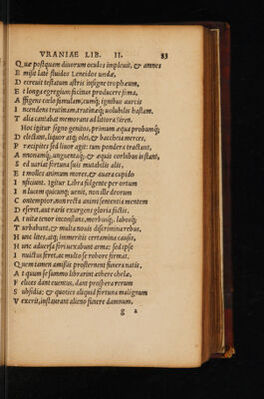 VRANIAE LIB. II. 83
Q uæ postquam diuorum oculos impleuit, & amnes
M issi late fluidos Leneidos undæ,
D ecreuit testatum astris insigne trophæum,
E t longa egregium facinus producere fama,
A ffigens cœlo simulacrum; ignibus auricis
I ncendens trutinam, rutinæq; uolubilis hastam.
T alis cantabat memorans ad littora siren.
Hoc igitur signo genitos, primum æqua probumq;
D electant, liquor atq; olei, & baccheia merces,
P recipites sed liuor agit: tum pondera tractant,
A nnonamq; unguentaq; & æquis corbibus instant,
S ed uaria fortuna suis mutabilis alis,
E t molles animum mores, & auara cupido
I nficiunt. Igitur Libra fulgente per ortum
I n lucem quicunq; uenit, non ille deorum
C ontemptor, non recta animi sententia mentem
D eserit, aut raris exurgens gloria factis.
A t uitæ tenor inconstans, morbiq; laborq;
T urbabunt, & multa nouis discrimina rebus.
H unc lites, atq; immeritis certamina causis,
H unc aduersa fori uexabunt arma: sed ipse
I nuictus feret, ac multo se robore firmat,
Q uem tamen amissis prosternent funera natis,
A t quum se summo librarint æthere chelæ,
F elices dant euentus, dant prospera rerum
S ubsidia; & quoties aliquid fortuna malignum
V exerit, instaurant alieno funere damnum,
g 2